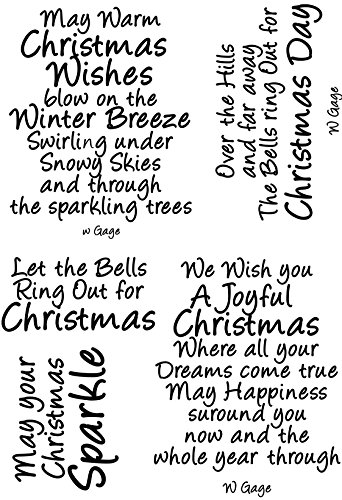 May Warm
Christmas
Wishes
blow on the
Winter Breeze
Swirling under
Snowy Skies
and through
the sparkling trees
w Gage
Over the Hills
and far away
The Bells ring Out for
Christmas Day
W Gage
Let the Bells
Ring Out for
Christmas
May your
Christmas
Sparkle
We Wish you
A Joyful
Christmas
Where all your
Dreams come true
May Happiness
suround you
now and the
whole year through
W Gage